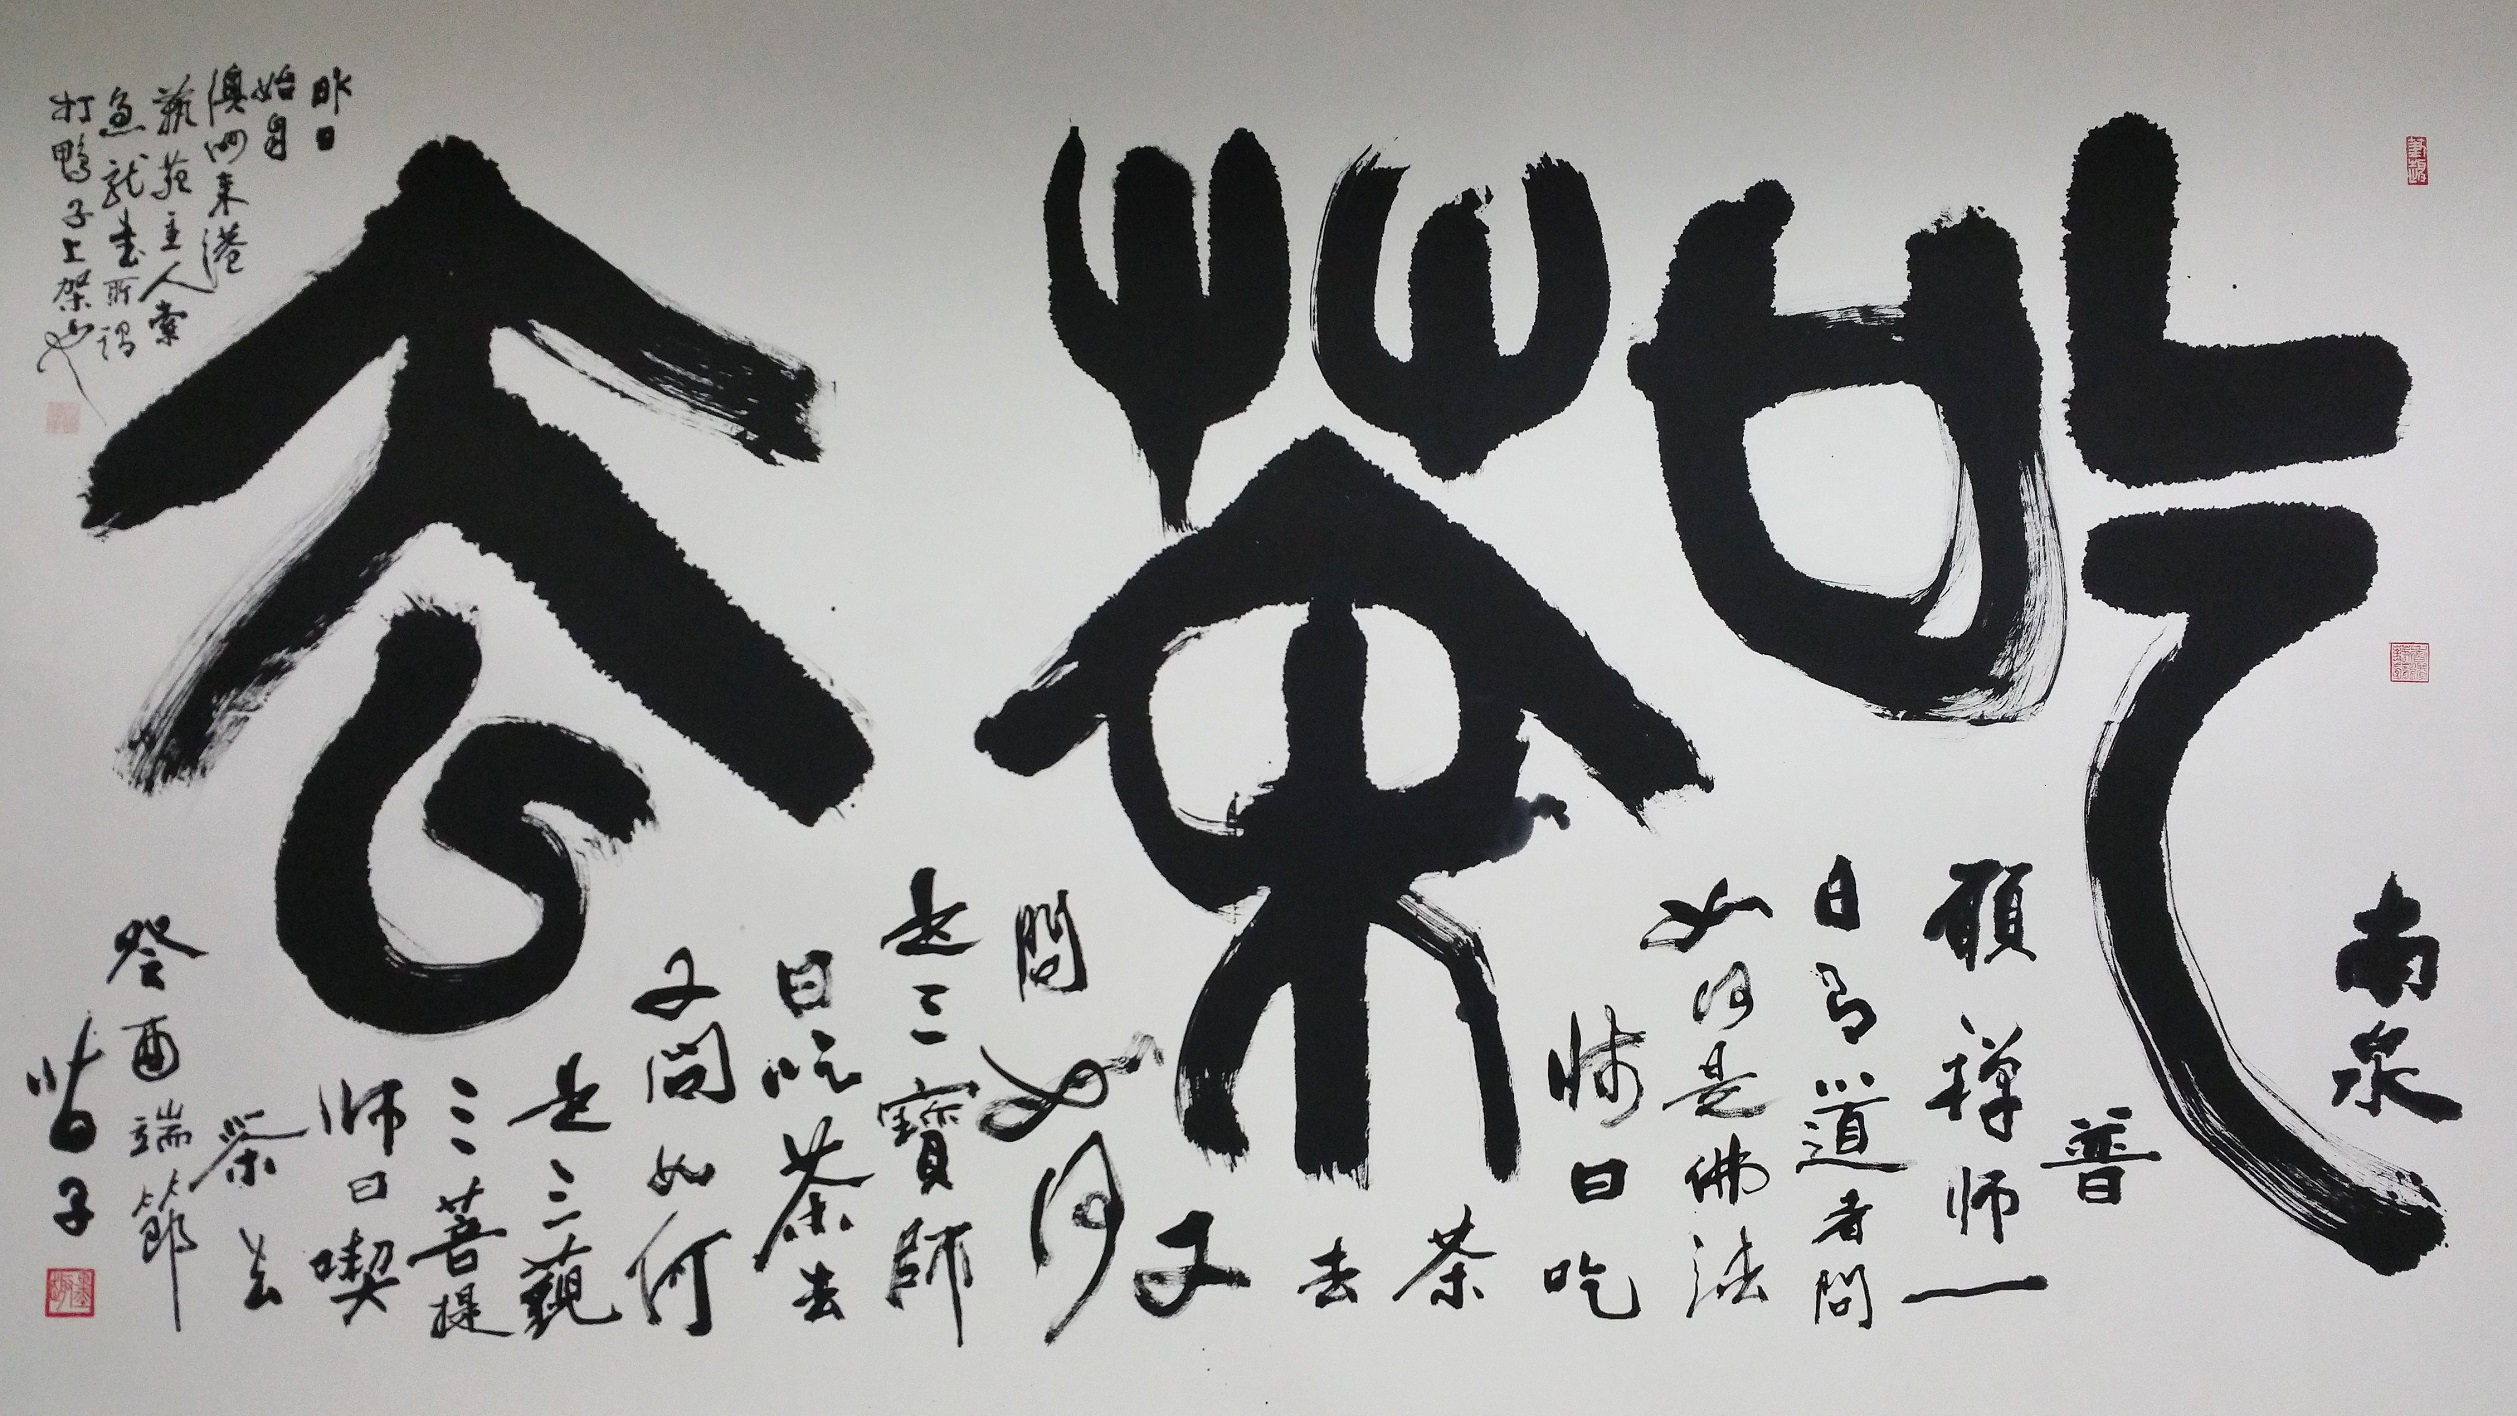 吃茶去
南泉
普
願禪师一
日有道者問
如何是佛法
师曰吃
茶
去
又
問如何
是三寶師
曰吃茶去
又問如何
是三藐
三菩提
师曰喫
茶去
癸酉端節
昨日
始自
澳洲来港
藝苑主人索
急就書所謂
打鴨子上架也